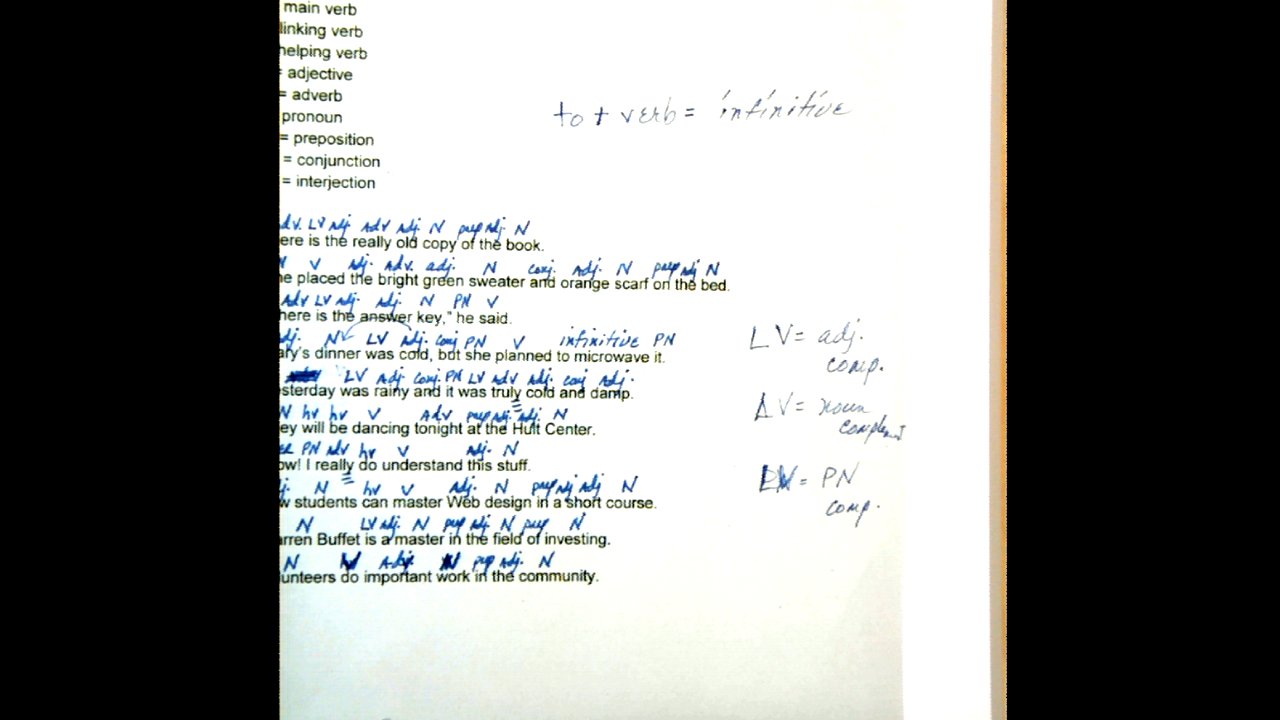 main verb
linking verb
helping verb
= adjective
= adverb
pronoun
to + verb = infinitive
= preposition
= conjunction
= interjection
adv. LV adj. Adv Adj. N prep adj. N
ere is the really old copy of the book.
N V Adj. Adv. adj. N conj. Adj. N prep adj N
he placed the bright green sweater and orange scarf on the bed.
Adv LV adj. Adj. N PN V
here is the answer key," he said.
adj. N LV Adj. conj PN V infinitive PN
ary's dinner was cold, but she planned to microwave it.
LV = adj. comp.
LV Adj. conj. PN LV Adv Adj. conj Adj.
sterday was rainy and it was truly cold and damp.
LV = noun
N hv hv V Adv prep adj. adj. N
ey will be dancing tonight at the Hult Center.
PN adv hv V adj. N
ow! I really do understand this stuff.
= PN comp.
j. N hv V Adj. N prep adj Adj N
w students can master Web design in a short course.
N LV adj. N prep adj. N prep N
arren Buffet is a master in the field of investing.
N V Adj. N prep Adj. N
unteers do important work in the community.